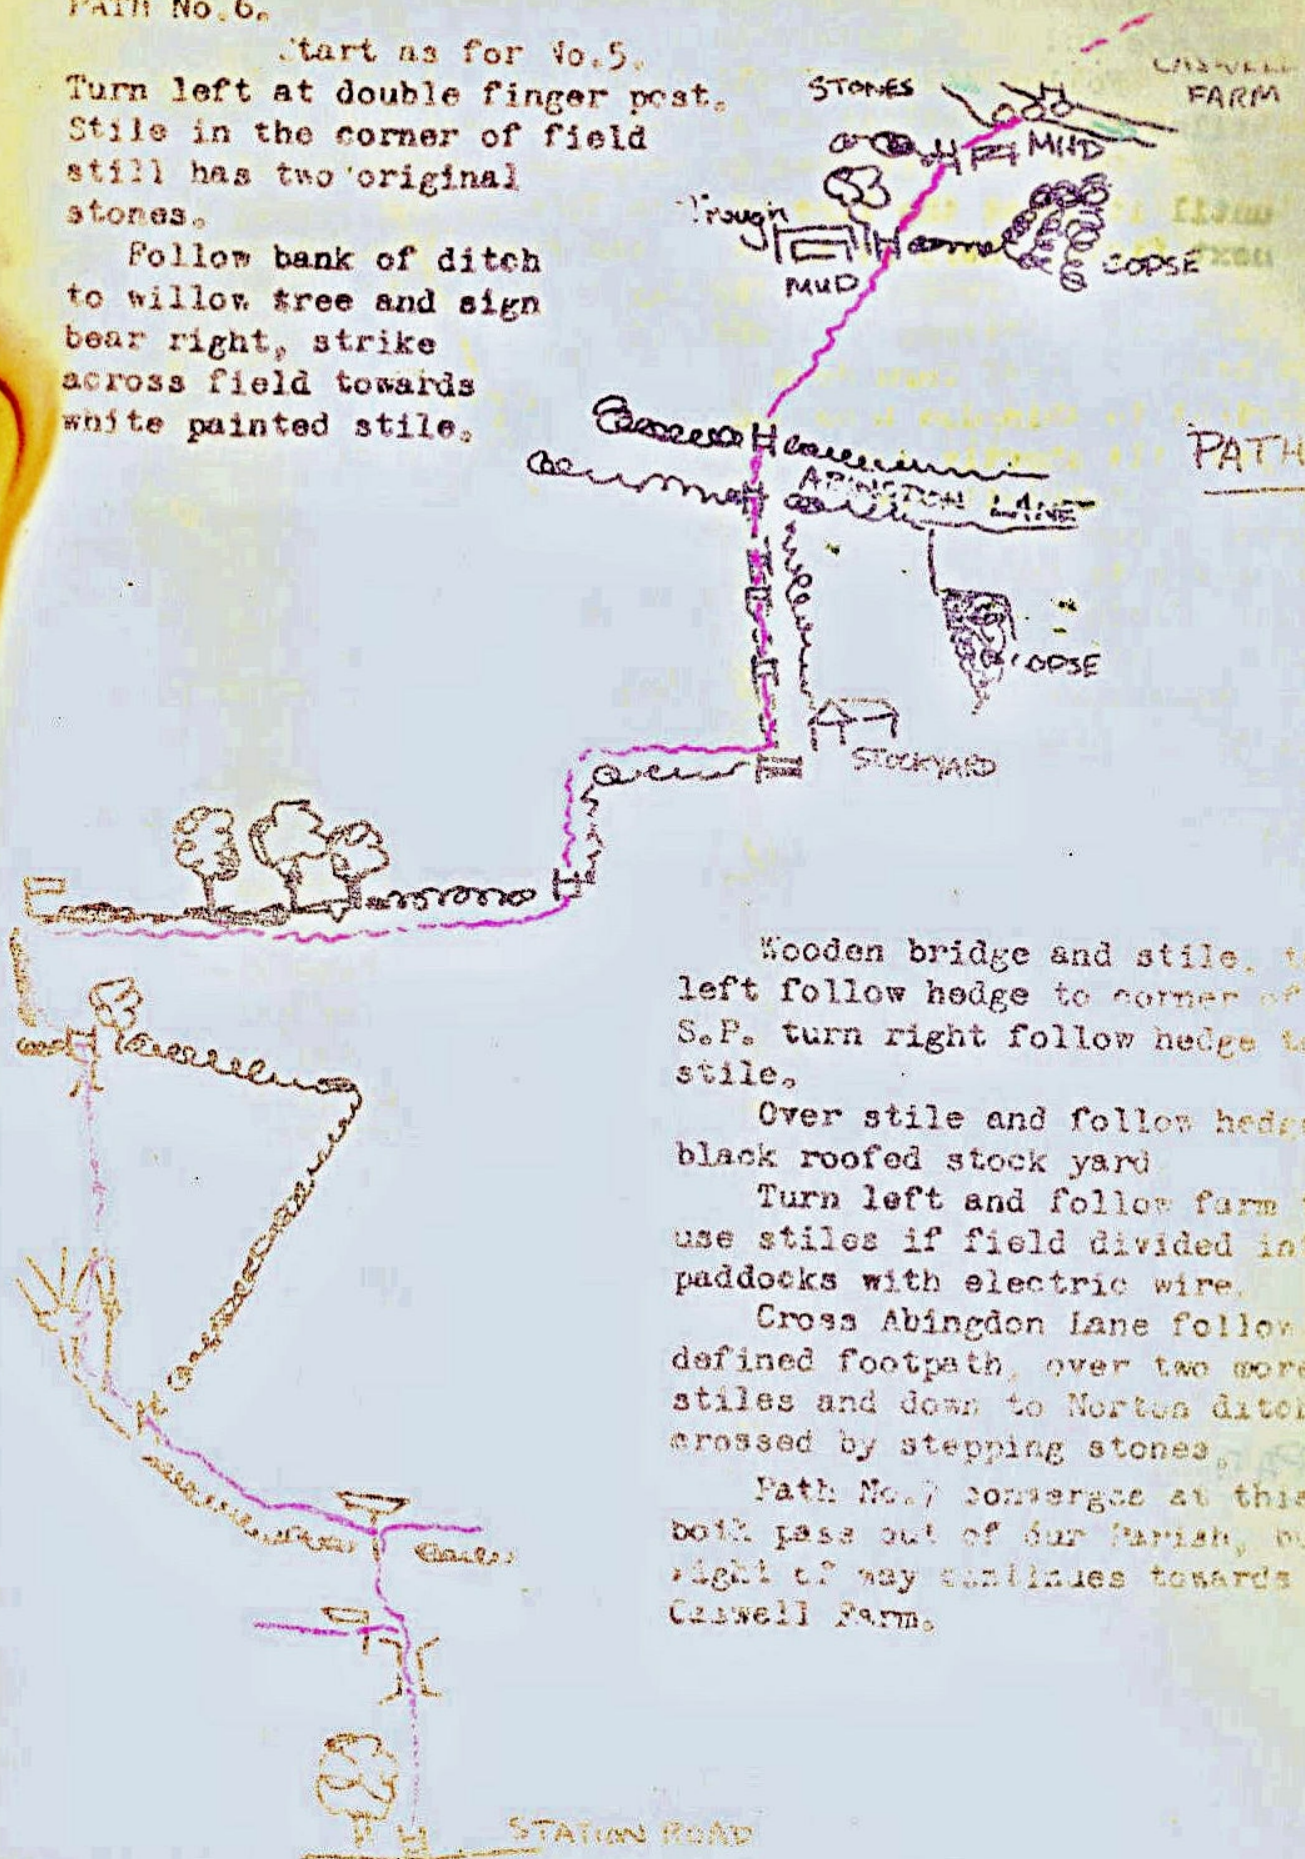 PATH No.6.
Start as for No.5.
Turn left at double finger post.
Stile in the corner of field
still has two original
stones.
Follow bank of ditch
to willow tree and sign
bear right, strike
across field towards
white painted stile.
STONES
FARM
MUD
Trough
MUD
COPSE
PATH
ABINGDON LANE
COPSE
STOCKYARD
Wooden bridge and stile.
left follow hedge to corner of
S.P. turn right follow hedge
stile.
Over stile and follow
black roofed stock yard
Turn left and follow farm
use stiles if field divided
paddocks with electric wire.
Cross Abingdon Lane follow
defined footpath, over two more
stiles and down to Norton
crossed by stepping stones.
Path No.7 converges at this
both pass out of our Parish,
right of way continues towards
Farm.
STATION ROAD